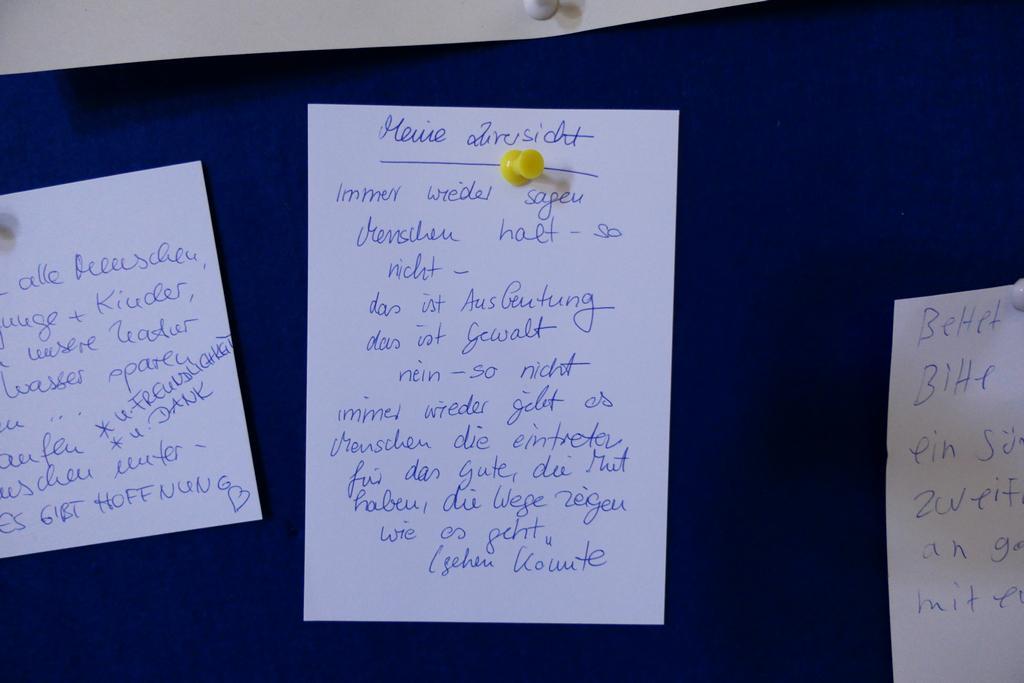 Meine Zuversicht
Immer wieder sagen
Menschen halt - so
nicht -
das ist Ausbeutung
das ist Gewalt
nein - so nicht
immer wieder gibt es
Menschen die eintreten
für das Gute, die Mut
haben, die Wege zeigen
wie es geht"
(gehen könnte
alle Menschen,
junge + Kinder,
unsere Natur
Wasser sparen
* u. FREUNDLICHKEIT
* u. DANK
unter -
ES GIBT HOFFNUNG
Bittet
Bitte
ein
an
mit